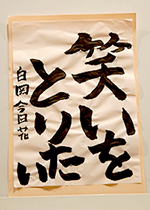 笑いを
とりたい
白田今日花